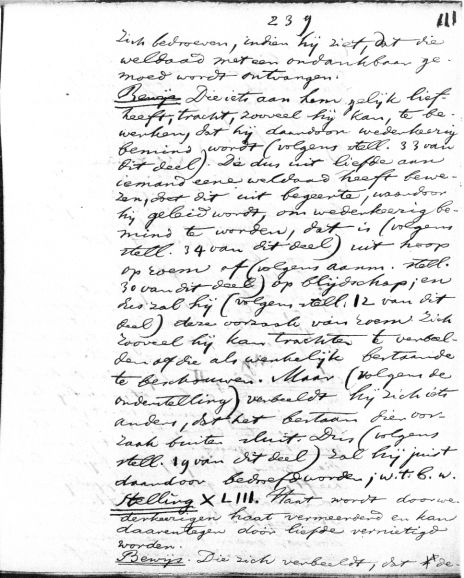 239
III
zich bedroeven, indien hij ziet, dat die
weldaad met een ondankbaar ge-
moed wordt ontvangen.
Bewijs. Die iets aan hem gelijk lief-
heeft, tracht, zooveel hij kan, te be-
werken, dat hij daardoor wederkeerig
bemind wordt (volgens stell. 33 van
dit deel). Die dus uit liefde aan
iemand eene weldaad heeft bewe-
zen, doet dit uit begeerte, waardoor
hij geleid wordt, om wederkeerig be-
mind te worden, dat is (volgens
stell. 34 van dit deel) uit hoop
op roem of (volgens aanm. stell.
30 van dit deel) op blijdschap; en
dus zal hij (volgens stell. 12 van dit
deel) deze oorzaak van roem zich
zooveel hij kan trachten te verbeel-
den of die als werkelijk bestaande
te beschouwen. Maar (volgens de
onderstelling) verbeeldt hij zich iets
anders, dat het bestaan dier oor-
zaak buiten sluit. Dus (volgens
stell. 19 van dit deel) zal hij juist
daardoor bedroefd worden; w.t.b.w.
Stelling XLIII. Haat wordt door we-
derkeerigen haat vermeerderd en kan
daarentegen door liefde vernietigd
worden.
Bewijs. Die zich verbeeldt, dat de